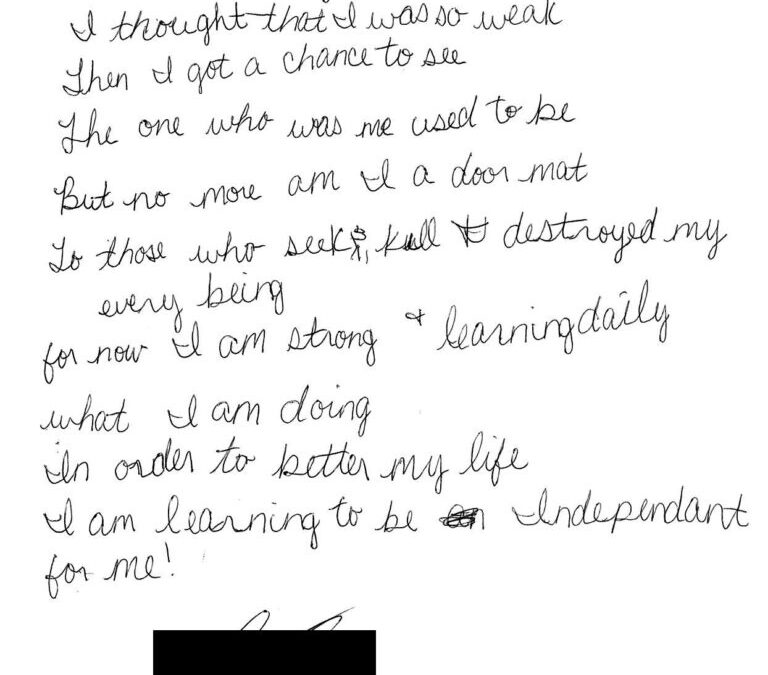 I thought that I was so weak
Then I got a chance to see
The one who was me used to be
But no more am I a door mat
To those who seek, kill & destroyed my
every being
for now I am strong & learning daily
what I am doing
In order to better my life
I am learning to be Independant
for me!